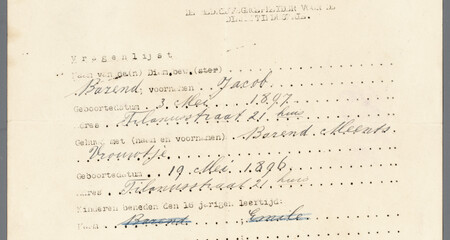 DE
VOOR DE
Vragenlijst
(Naam van de(n) Diam.bew.(ster)
Barend, voornamen Jacob
Geboortedatum 3 Mei 1897
Adres Tilanusstraat 21 huis
Gehuwd met (naam en voornamen) Barend Meents
Vrouwtje
Geboortedatum 19 Mei 1896
Adres Tilanusstraat 21 huis
Kinderen beneden den 16 jarigen leeftijd:
Naam Barend